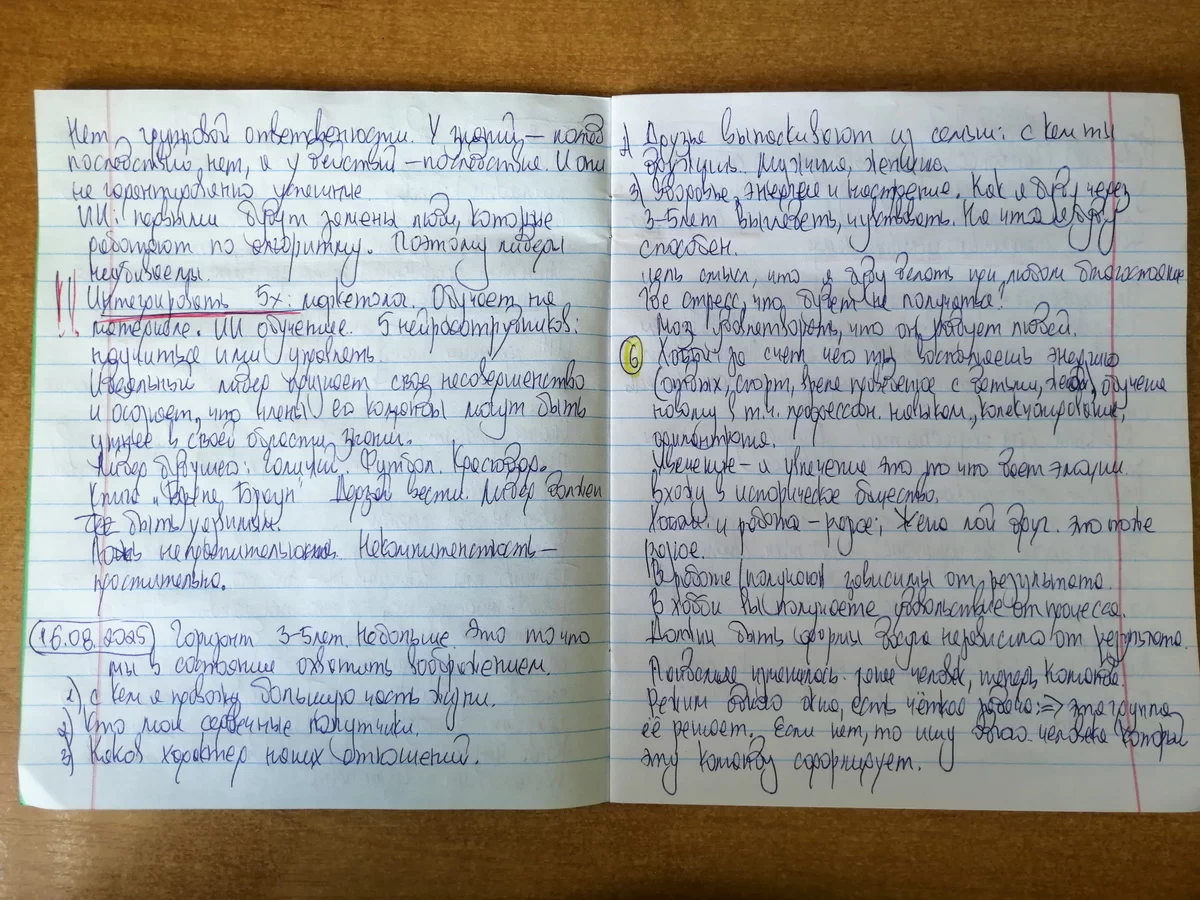 Нет групповой ответственности. У знаний —
последствий нет, а у действий — последствие. И они
не гарантированно успешные
ИИ: первыми будут замены люди, которые
работают по алгоритму. Поэтому лидеры
неубиваемы.
!! Интегрировать 5х: маркетолог. Обучает на
материале. ИИ обучение. 5 нейросотрудников:
научиться ими управлять.
Идеальный лидер признает свое несовершенство
и осознает, что члены его команды могут быть
умнее в своей области знаний.
Лидер будущего: Футбол.
Книга "Брене Браун" Дерзай вести. Лидер должен
быть уязвимым.
Ложь непростительна. Некомпитентность —
простительно.
16.08.2025 Горизонт 3-5 лет. Не больше. Это то что
мы в состояние охватить воображением.
1) с кем я провожу большую часть жизни.
2) Кто мои сердечные попутчики.
3) Каков характер наших отношений.
Друзья вытаскивают из семьи: с кем ты
дружишь. Мужчина, женщина.
3) Здоровье, энергия и настроение. Как я буду через
3-5 лет выглядеть, чувствовать. На что я буду
способен.
цель смысл, что я буду делать при любом благостояние
Где стресс, что будет не получаться?
Мозг удовлетворять, что он любит людей.
6 Хобби за счет чего ты восполняешь энергию
(отдых, спорт, время проведенное с детьми, женой), обучение
новому в т.ч. профессион. навыкам, колекционирование,
Увлечение — и увлечение это то что дает эмоции.
Вхожу в историческое общество.
Хобби и работа — разное; Жена мой друг. Это тоже
разное.
В работе (получаю) зависимы от результата.
В хобби вы получаете удовольствие от процесса.
Должны быть независимо от результата.
изменилась. ранее человек, теперь команда
Режим одного окна, есть чёткая задача: => эта группа
её решает. Если нет, то ищу одного человека который
эту команду сформирует.